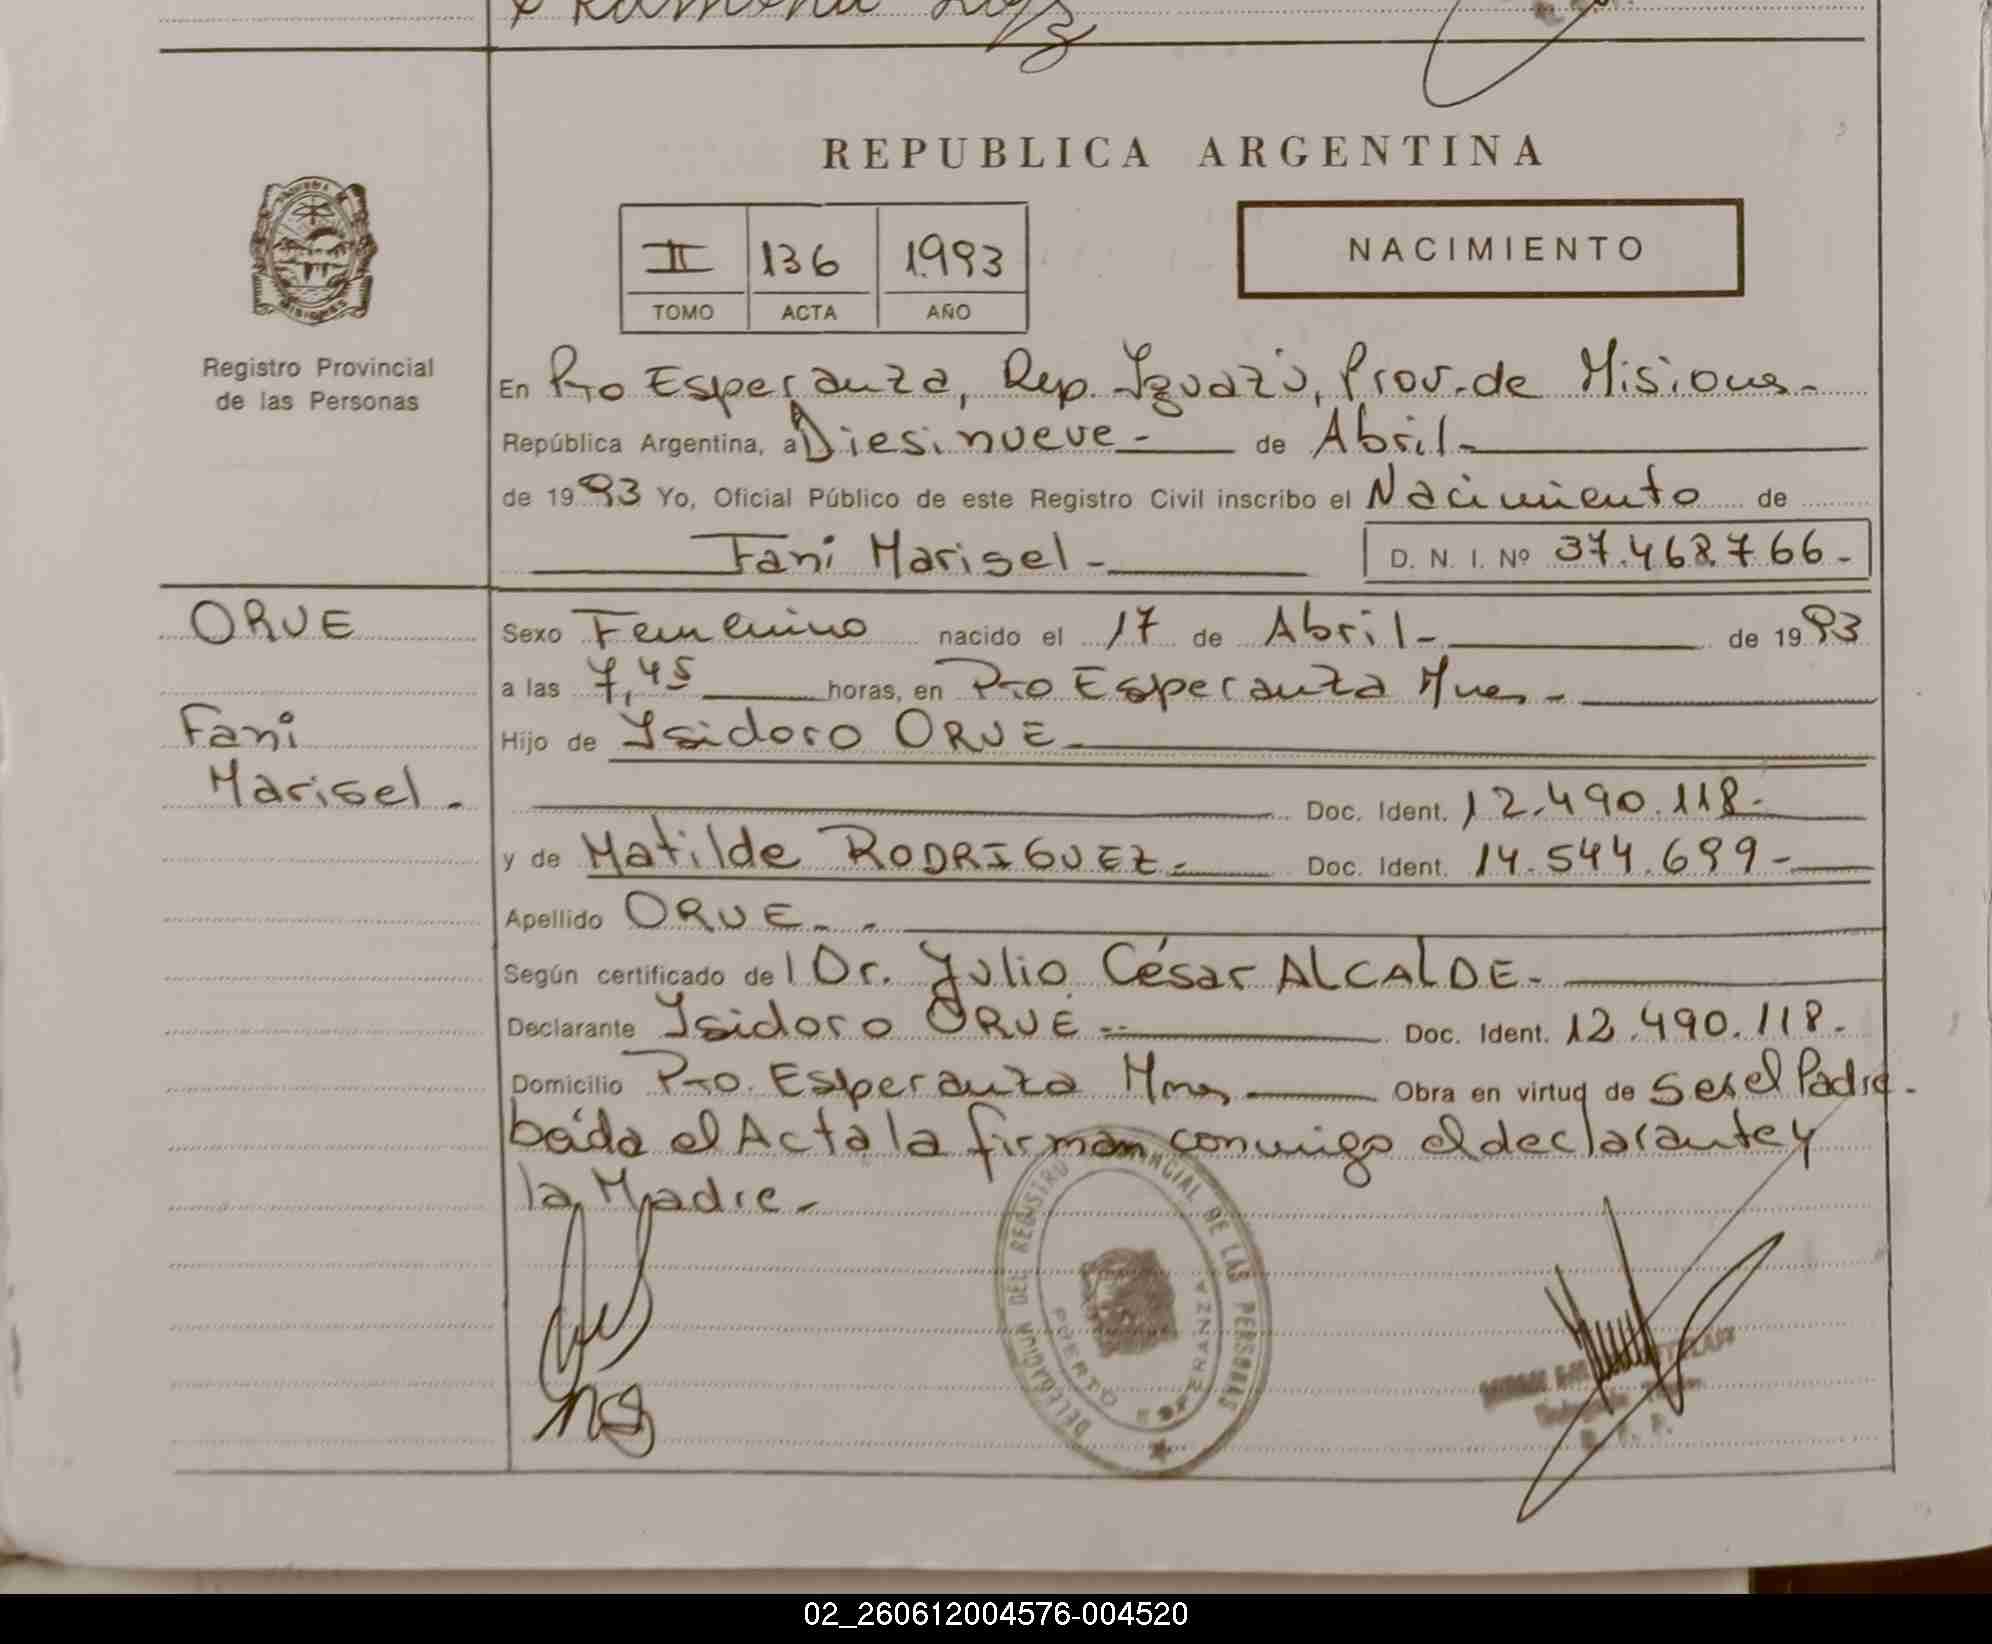 REPUBLICA ARGENTINA
II 136 1993
TOMO ACTA AÑO
NACIMIENTO
Registro Provincial
de las Personas
En Pto Esperanza, Dep. Iguazú, Prov. de Misiones -
República Argentina, a Diesinueve - de Abril -
de 1993 Yo, Oficial Público de este Registro Civil inscribo el Nacimiento de
Fani Marisel - D. N. I. Nº 37.468.766 -
ORUE
Fani
Marisel -
Sexo Femenino nacido el 17 de Abril - de 1993
a las 7,45 horas, en Pto Esperanza Mnes -
Hijo de Isidoro ORUE -
Doc. Ident. 12.490.118 -
y de Matilde RODRIGUEZ - Doc. Ident. 14.544.699 -
Apellido ORUE - -
Según certificado del Dr. Julio César ALCALDE -
Declarante Isidoro ORUE - Doc. Ident. 12.490.118 -
Domicilio Pto. Esperanza Mnes Obra en virtud de ser el Padre -
Leída el Acta la firman conmigo el declarante y
la Madre -
DELEGACION DEL REGISTRO PROVINCIAL DE LAS PERSONAS
PUERTO ESPERANZA
02_260612004576-004520